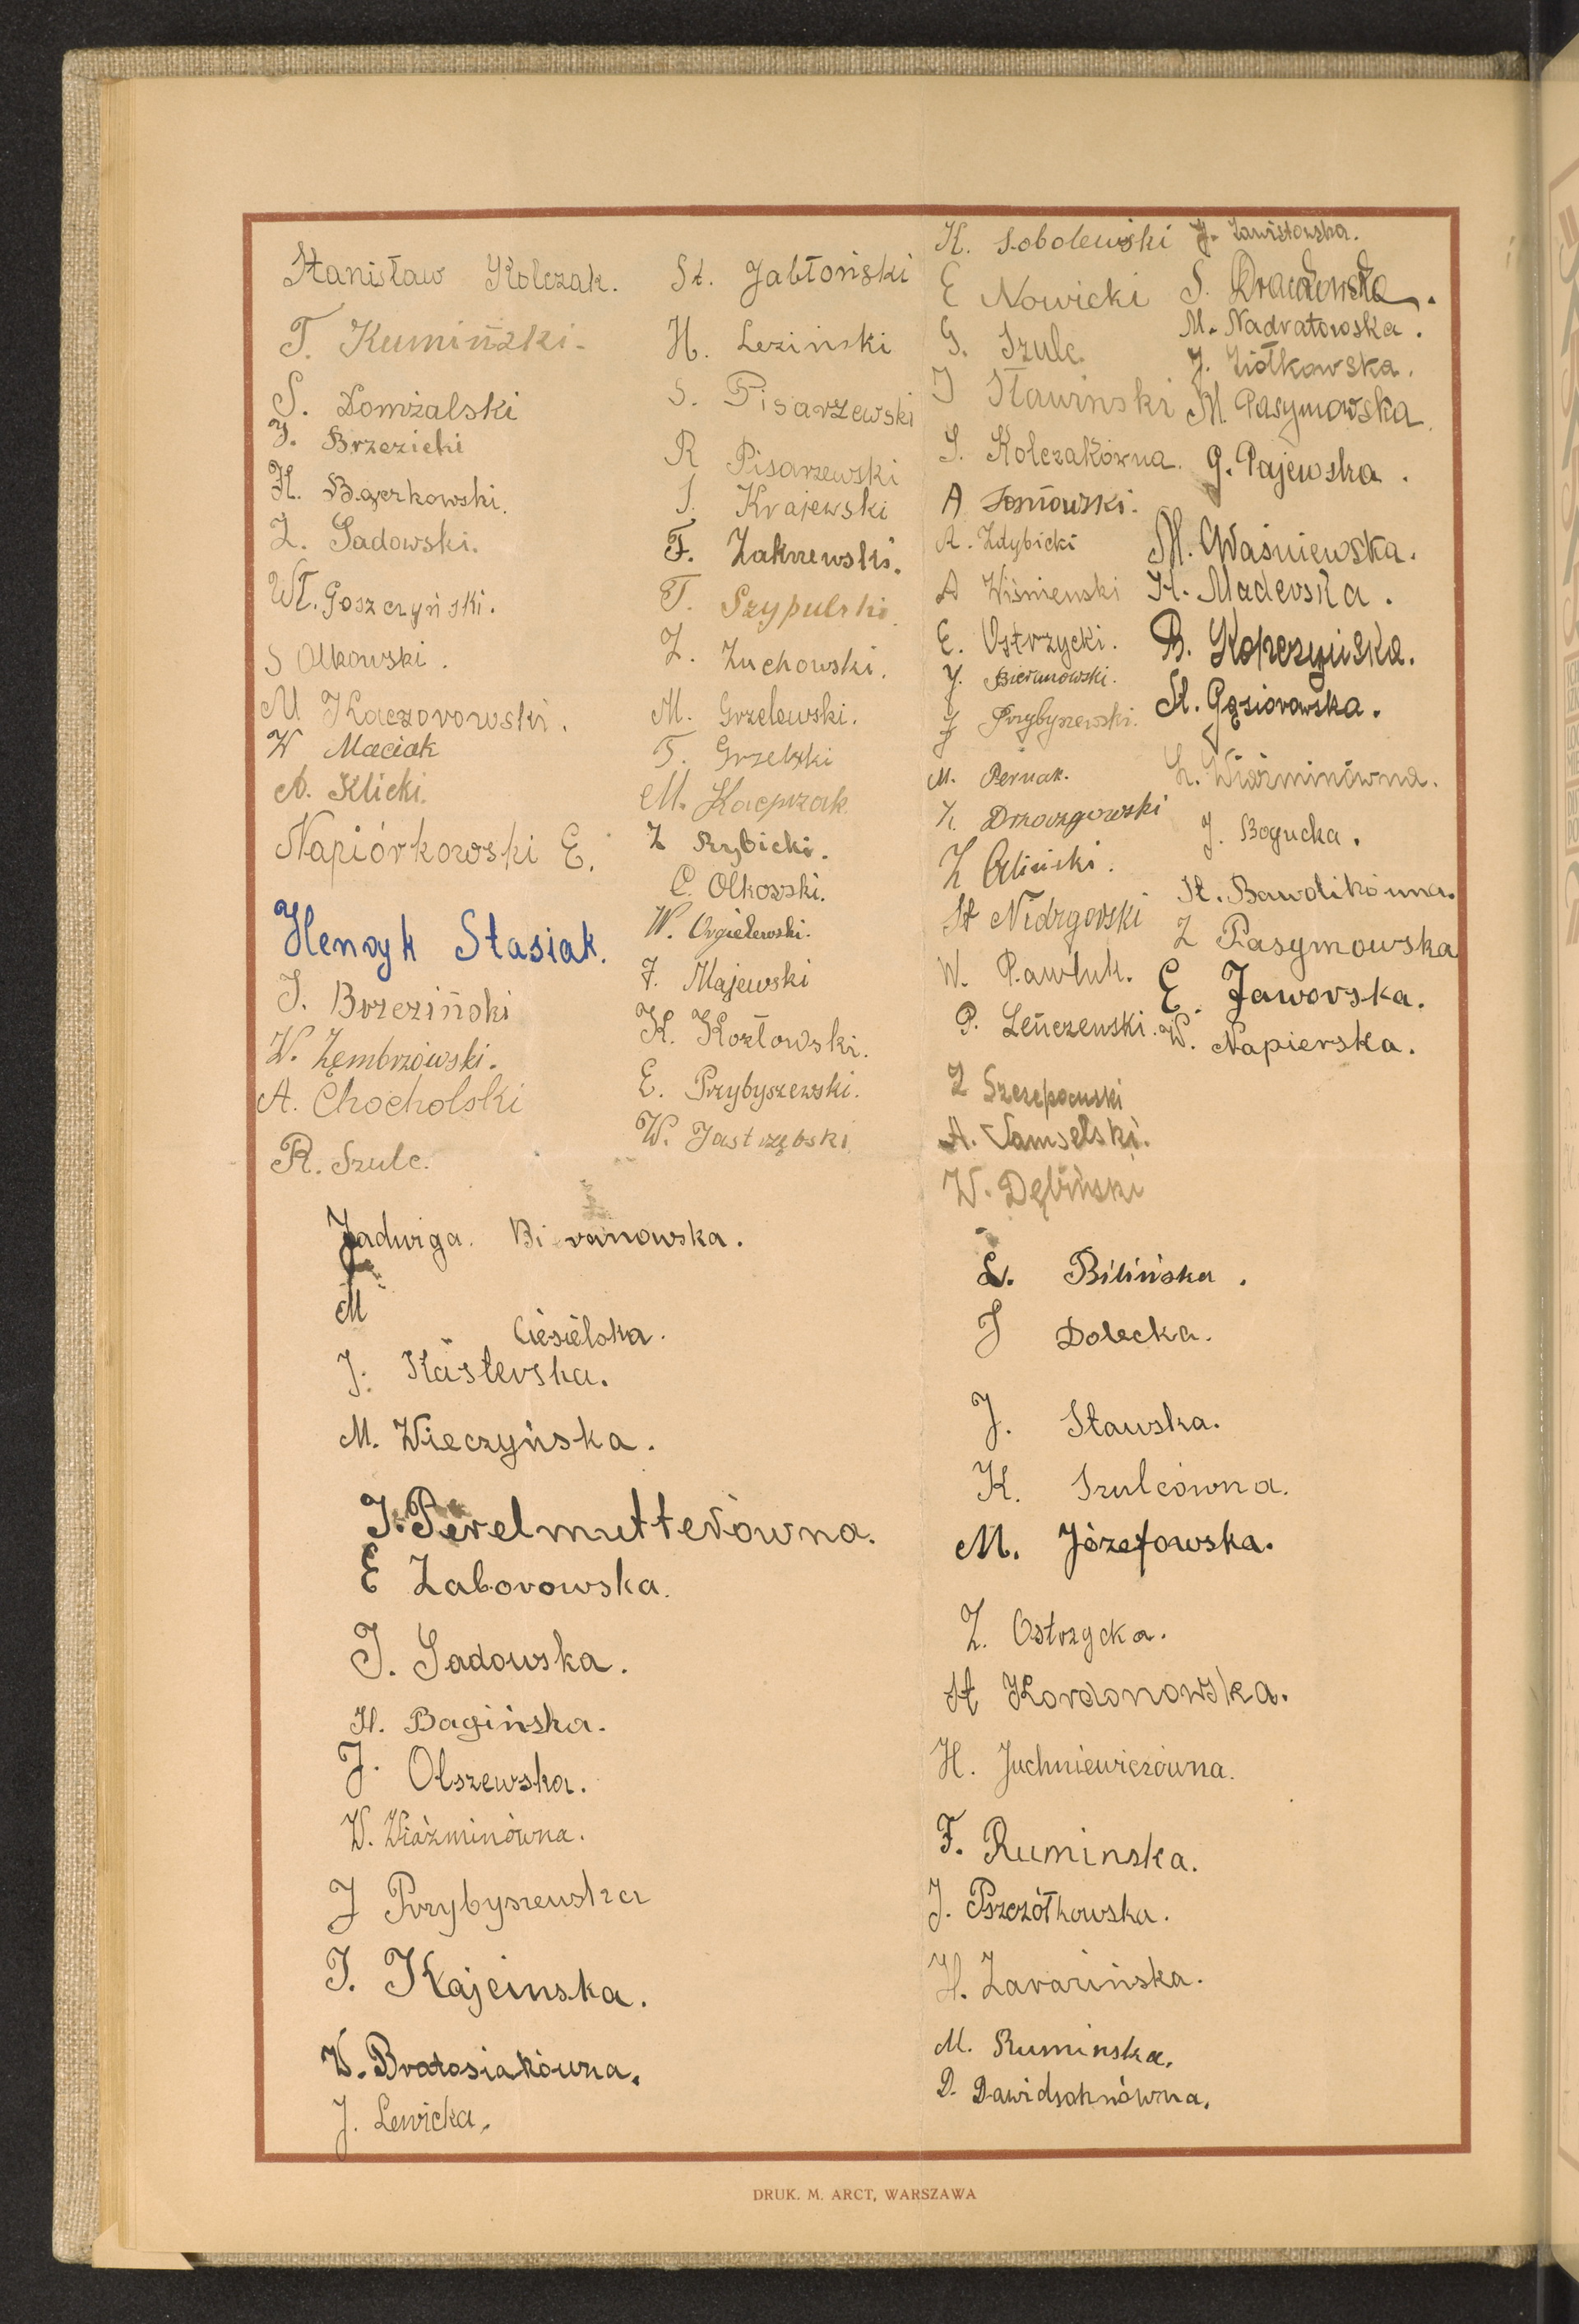 Stanisław Kolczak.
T. Kumiński.
S. Domżalski
J. Brzezicki
K. Bączkowski.
Z. Sadowski.
Wł. Goszczyński.
S Olkowski.
M Kaczorowski.
W Maciak
A. Klicki.
Napiórkowski E.
Henryk Stasiak.
J. Brzeziński
W. Zembrzowski.
A. Chocholski
R. Szulc.
St. Jabłoński
H. Leziński
S. Pisarzewski
R Pisarzewski
J. Krajewski
F. Zakrzewski.
T. Szypulski.
Z. Żuchowski.
M. Grzelewski.
T. Grzelski
M. Kacprzak
Z Rybicki.
C. Olkowski.
W. Orgielewski.
F. Majewski
K. Kozłowski.
E. Przybyszewski.
W. Jastrzębski
K. Sobolewski
E Nowicki
G. Szulc.
J Sławinski
S. Kolczakówna.
A Sosnowski.
A. Zdybicki
A Wiśniewski
E. Ostrzycki.
J. Bieranowski.
J Przybyszewski.
M. Pernak.
K. Drozgowski
Z Gliński.
St Niedzgorski
W. Pawluk.
P. Leńczewski.
Z Szczepański
A. Samselski.
W. Dębiński
J. Zawistowska.
S.
M. Nadratowska.
J. Ziółkowska.
M. Pasymowska.
G. Pajewska.
M. Waśniewska.
H. Maderska.
B. Kopczyńska.
St. Gąsiorowska.
L. Wiaźminówna.
J. Bogucka.
St. Bawolikówna.
Z Pasymowska
E. Jaworska.
W. Napierska.
Jadwiga. Bieranowska.
M Ciesielska.
J. Kasterska.
M. Wieczyńska.
J. Perelmutterówna.
E Zaborowska.
J. Sadowska.
H. Bagińska.
J. Olszewska.
W. Wiaźminówna.
J Przybyszewska
J. Kajeinska.
W. Bratosiakówna.
J. Lewicka.
L. Bilińska.
J Dolecka.
J. Sławska.
K. Szulcówna.
M. Józefowska.
Z. Ostrzycka.
St Kordonowska.
H. Juchniewiczówna.
F. Ruminska.
J. Pszczółkowska.
H. Zavarińska.
M. Ruminska.
D. Dawidsohnówna.
DRUK. M. ARCT, WARSZAWA